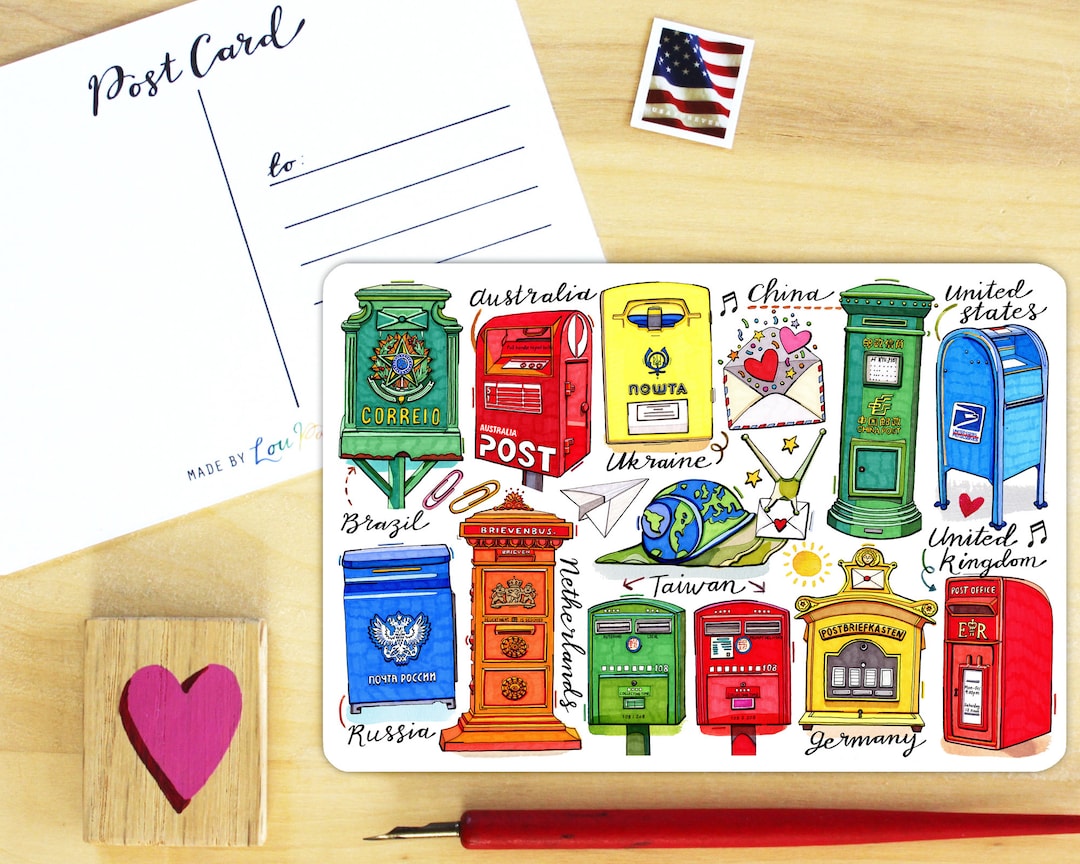 Post Card
to:
MADE BY Lou
USA FOREVER
Australia
China
United
states
CORREIO
AUSTRALIA
POST
ПОШТА
Ukraine
Brazil
BRIEVENBUS.
BRIEVEN
Netherlands
Taiwan
United
kingdom
ПОЧТА РОССИИ
Russia
108
108
POSTBRIEFKASTEN
Germany
POST OFFICE
E R